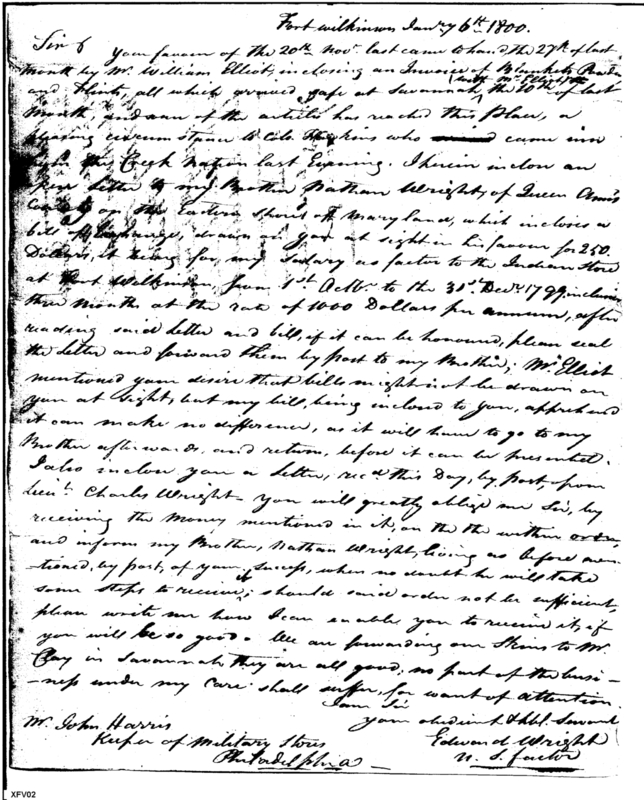 Fort Wilkinson Janry 6th 1800.
Sir your favour of the 20th Novr last came to hand the 27th of last
month by Mr. William Elliot, inclosing an Invoice of Blankets Powder
with Mr Elliot
and flints, all which arrived safe at Savannah the 20th of last
Month, and one of the articles has reached this place, a
pleasing circumstance to Colo Hawkins who came in
the Creek Nation last Evening. I herein inclose an
open Letter to my Brother Nathan Wright, of Queen Ann's
County on the Eastern shore of Maryland, which incloses a
bill of Exchange, drawn on you at sight in his favour for 250
Dollars, it being for my salary as factor to the Indian Store
at Fort Wilkinson, from 1st Octbr to the 31st Decr 1799, inclusive
three months at the rate of 1000 Dollars per annum, after
reading said Letter and bill, if it can be honoured, please seal
the Letter and forward them by post to my Brother; Mr Elliot
mentioned your desire that bills might not be drawn on
you at sight, but my bill, being inclosed to you, apprehend
it can make no difference, as it will have to go to my
Brother afterwards, and return, before it can be presented.
I also inclose you a Letter, recd this Day, by post, from
Lieut. Charles Wright you will greatly oblige me Sir, by
receiving the money mentioned in it, on the the within order,
and inform my Brother, Nathan Wright, living as before men
tioned, by post, of your success, when no doubt he will take
some steps to receive it; should said order not be sufficient,
please write me how I can enable you to receive it, if
you will be so good. We are forwarding our Skins to Mr.
Clay in Savannah, they are all good; no part of the busi-
-ness under my care shall suffer, for want of attention.
I am Sir
your obedient & hbl. Servant
Edward Wright
U. S. factor
Mr. John Harris
Keeper of Military Stores
Philadelphia
XFV02